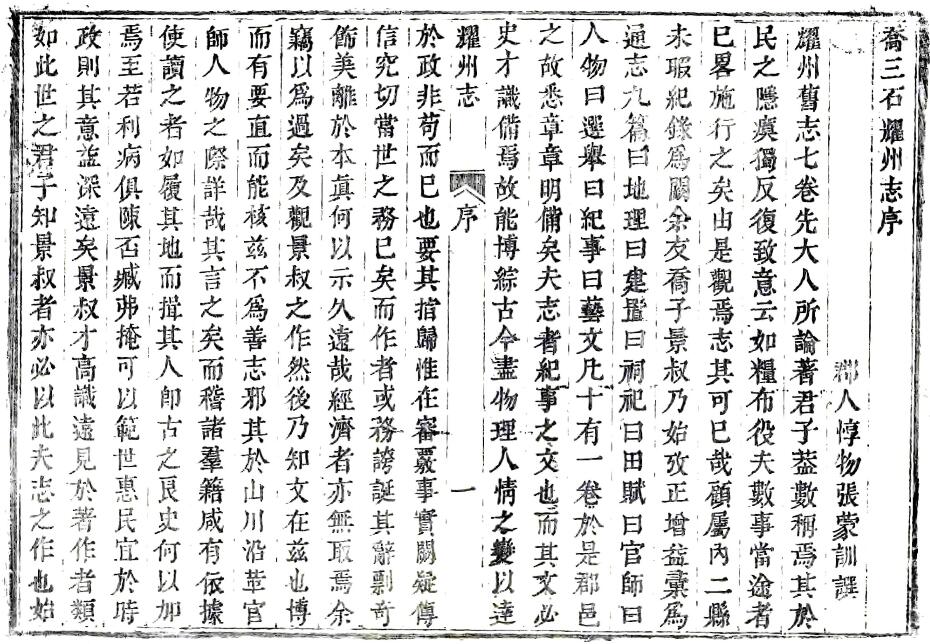 喬三石耀州志序
郡人惇物張蒙訓譔
耀州舊志七卷先大人所論著君子葢數稱焉其於
民之隱瘼獨反復致意云如糧布役夫數事當途者
巳畧施行之矣由是觀焉志其可已哉顧屬內二縣
未暇紀錄爲闕余友喬子景叔乃始攷正增益彚爲
通志九篇曰地理曰建置曰祠祀曰田賦曰官師曰
人物曰選舉曰紀事曰藝文凡十有一卷於是郡邑
之故悉章章明備矣夫志者紀事之文也而其文必
史才識備焉故能博綜古今盡物理人情之變以達
耀州志 序 一
於政非苟而巳也要其指歸惟在審覈事實闕疑傳
信究切當世之務巳矣而作者或務誇誕其辭剽奇
飾美離於本眞何以示久遠哉經濟者亦無取焉余
竊以爲過矣及觀景叔之作然後乃知文在兹也博
而有要直而能核兹不爲善志邪其於山川沿革官
師人物之際詳哉其言之矣而稽諸羣籍咸有依據
使讀之者如履其地而揖其人卽古之良史何以加
焉至若利病俱陳否臧弗掩可以範世惠民宜於時
政則其意益深遠矣景叔才高識遠見於著作者類
如此世之君子知景叔者亦必以此夫志之作也始